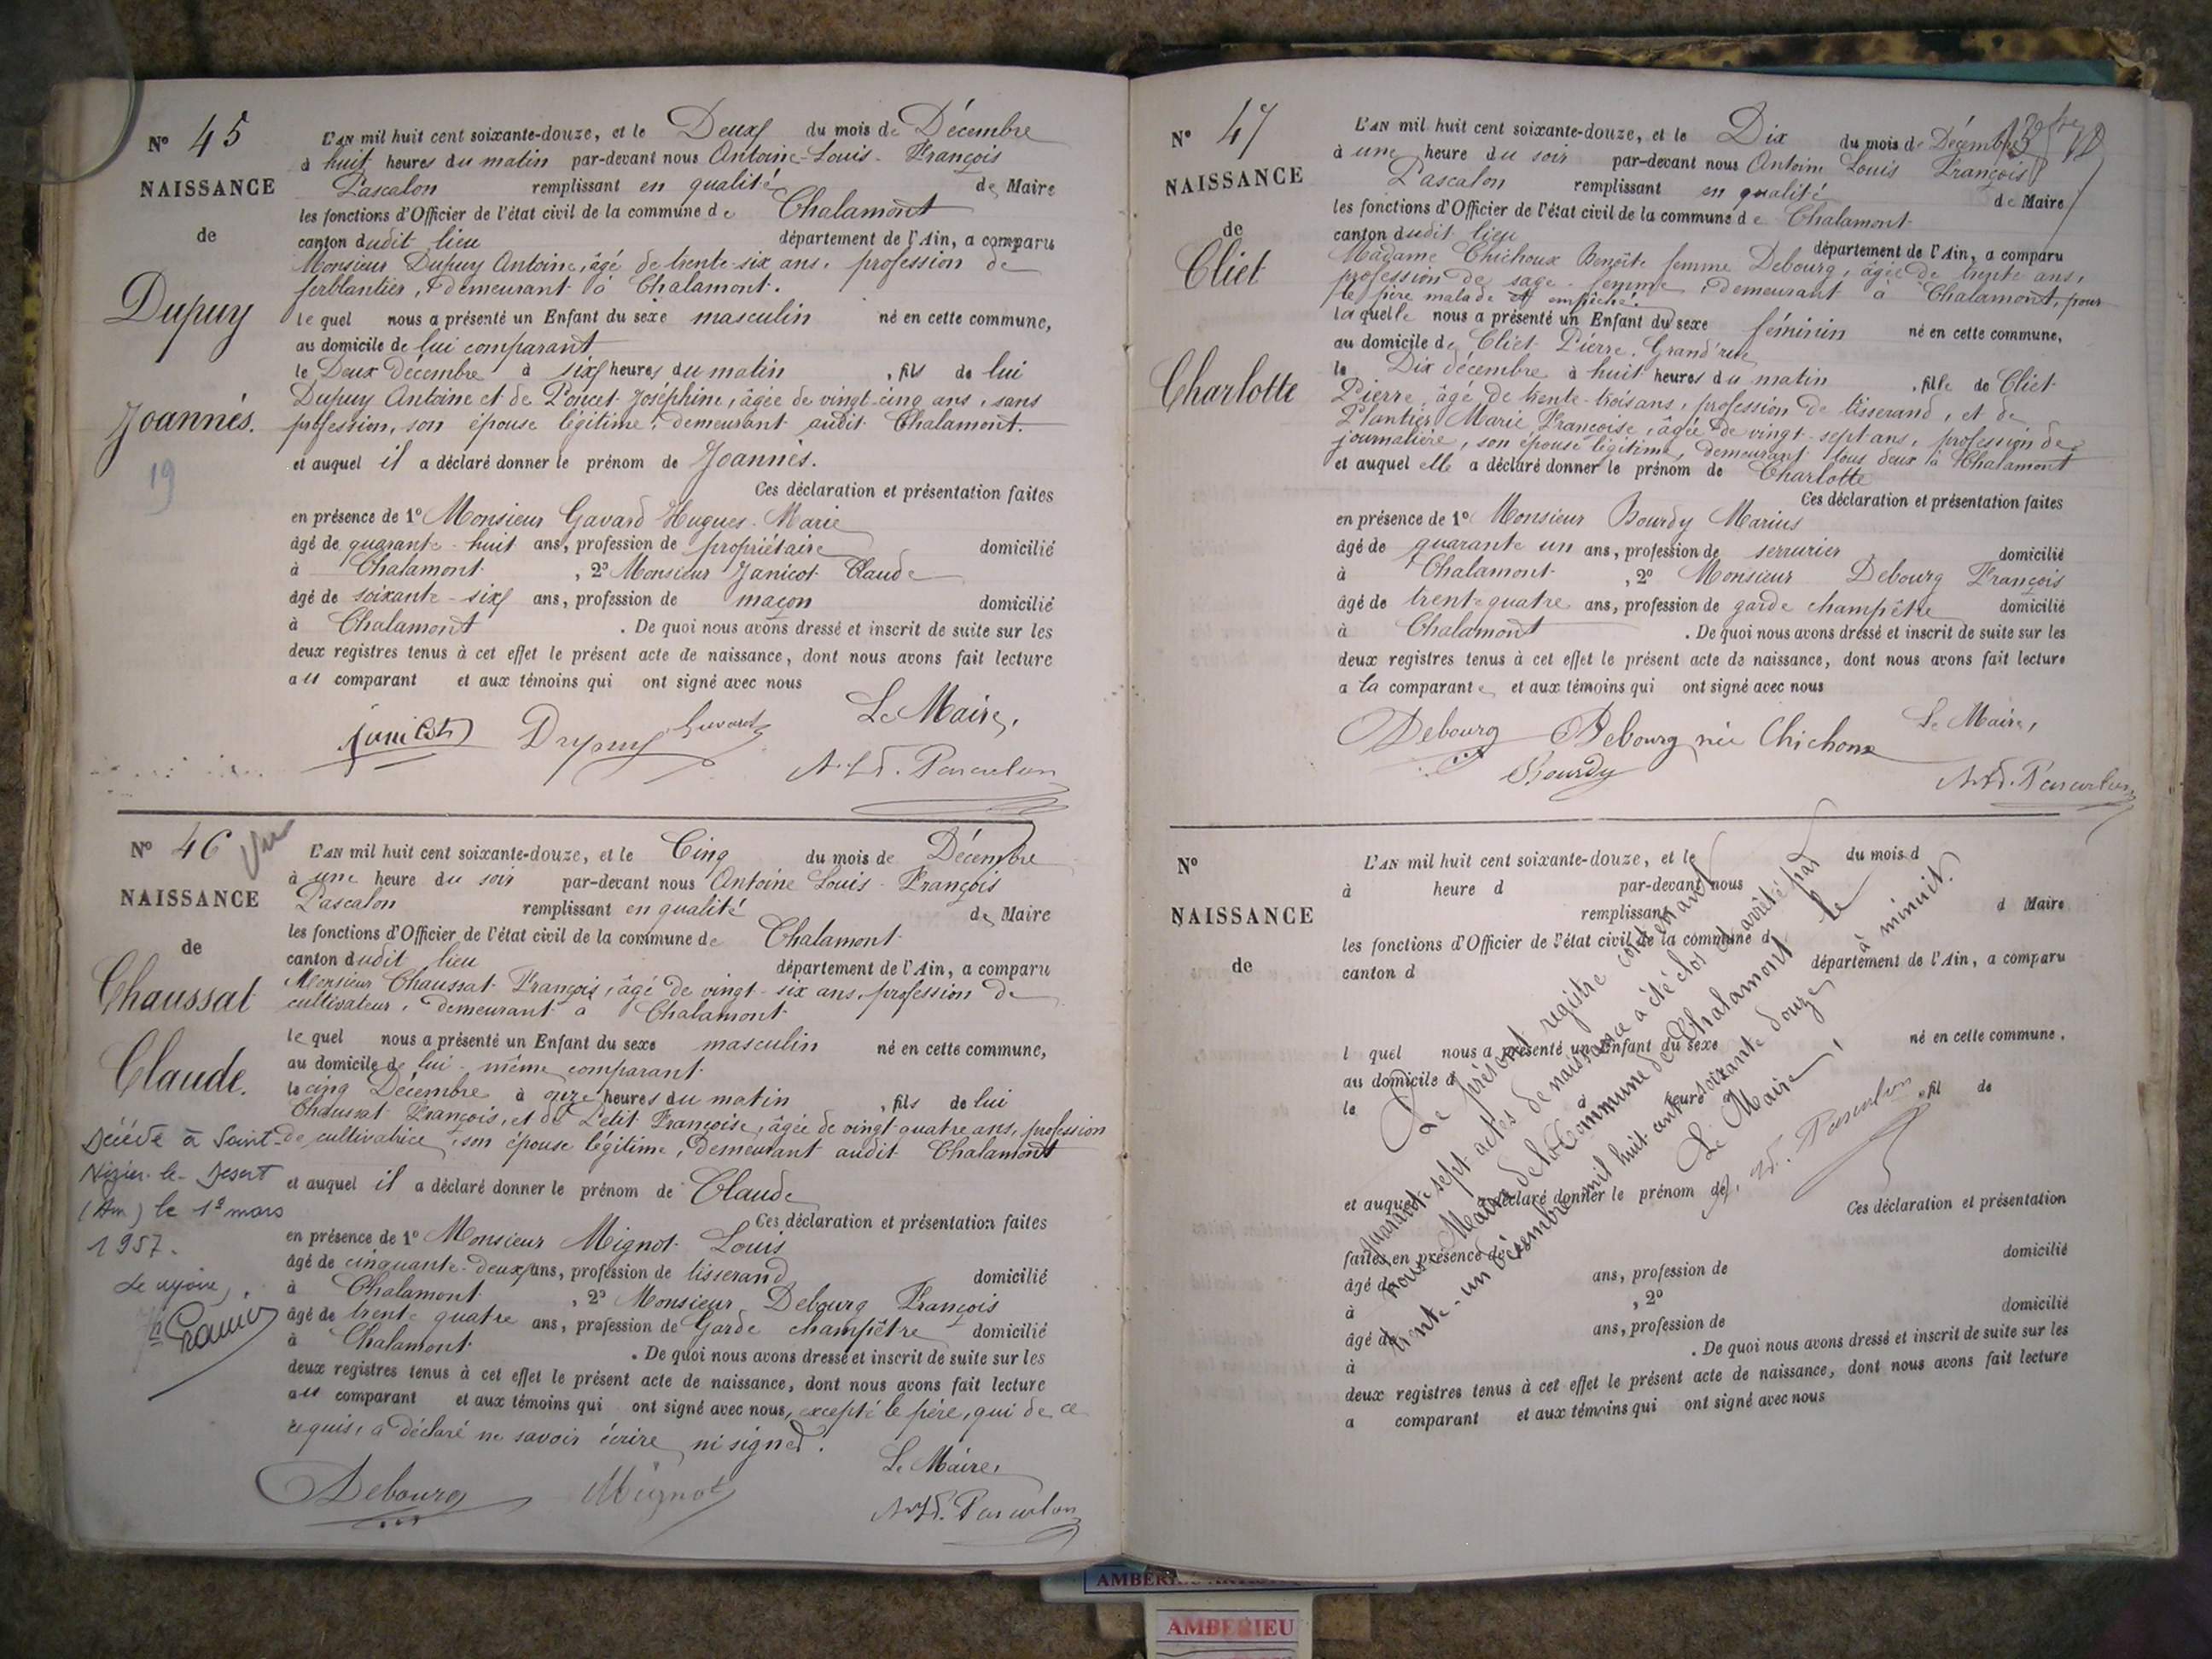 N° 45
NAISSANCE
de
Dupuy
Joannès.
19
L'AN mil huit cent soixante-douze, et le Deux du mois de Décembre
à huit heures du matin par-devant nous Antoine-Louis-François
Pascalon remplissant en qualité de Maire
les fonctions d'Officier de l'état civil de la commune de Chalamont
canton dudit lieu département de l'Ain, a comparu
Monsieur Dupuy Antoine, âgé de trente-six ans, profession de
ferblantier, demeurant à Chalamont.
le quel nous a présenté un Enfant du sexe masculin né en cette commune,
au domicile de lui comparant
le Deux décembre à six heures du matin, fils de lui
Dupuy Antoine et de Poncet Joséphine, âgée de vingt-cinq ans, sans
profession, son épouse légitime, demeurant audit Chalamont.
et auquel il a déclaré donner le prénom de Joannès.
Ces déclaration et présentation faites
en présence de 1° Monsieur Gavard Hugues-Marie
âgé de quarante-huit ans, profession de propriétaire domicilié
à Chalamont, 2° Monsieur Janicot Claude
âgé de soixante-six ans, profession de maçon domicilié
à Chalamont. De quoi nous avons dressé et inscrit de suite sur les
deux registres tenus à cet effet le présent acte de naissance, dont nous avons fait lecture
au comparant et aux témoins qui ont signé avec nous
Le Maire,
Janicot Dupuy Gavard
A.L.F. Pascalon
N° 46
Vu
NAISSANCE
de
Chaussat
Claude.
Décédé à Saint-
Nizier-le-Desert
(Ain) le 1er mars
1957.
Le Maire,
L'AN mil huit cent soixante-douze, et le Cinq du mois de Décembre
à une heure du soir par-devant nous Antoine Louis-François
Pascalon remplissant en qualité de Maire
les fonctions d'Officier de l'état civil de la commune de Chalamont
canton dudit lieu département de l'Ain, a comparu
Monsieur Chaussat François, âgé de vingt-six ans, profession de
cultivateur, demeurant à Chalamont
le quel nous a présenté un Enfant du sexe masculin né en cette commune,
au domicile de lui-même comparant
le cinq Décembre à onze heures du matin, fils de lui
Chaussat François, et de Petit Françoise, âgée de vingt-quatre ans, profession
de cultivatrice, son épouse légitime, demeurant audit Chalamont
et auquel il a déclaré donner le prénom de Claude
Ces déclaration et présentation faites
en présence de 1° Monsieur Mignot Louis
âgé de cinquante-deux ans, profession de tisserand domicilié
à Chalamont, 2° Monsieur Debourg François
âgé de trente quatre ans, profession de Garde champêtre domicilié
à Chalamont. De quoi nous avons dressé et inscrit de suite sur les
deux registres tenus à cet effet le présent acte de naissance, dont nous avons fait lecture
au comparant et aux témoins qui ont signé avec nous, excepté le père, qui de ce
requis, a déclaré ne savoir écrire ni signer.
Le Maire,
Debourg Mignot
A.L.F. Pascalon
N° 47
NAISSANCE
de
Cliet
Charlotte
L'AN mil huit cent soixante-douze, et le Dix du mois de Décembre
à une heure du soir par-devant nous Antoine Louis François
Pascalon remplissant en qualité de Maire
les fonctions d'Officier de l'état civil de la commune de Chalamont
canton dudit lieu département de l'Ain, a comparu
Madame Chichoux Benoîte femme Debourg, âgée de trente ans,
profession de sage-femme, demeurant à Chalamont, pour
le père malade et empêché.
laquelle nous a présenté un Enfant du sexe féminin né en cette commune,
au domicile de Cliet Pierre, Grand'rue
le Dix décembre à huit heures du matin, fille de Cliet
Pierre, âgé de trente-trois ans, profession de tisserand, et de
Plantier Marie Françoise, âgée de vingt-sept ans, profession de
journalière, son épouse légitime, demeurant tous deux à Chalamont
et auquel elle a déclaré donner le prénom de Charlotte
Ces déclaration et présentation faites
en présence de 1° Monsieur Bourdy Marius
âgé de quarante un ans, profession de serrurier domicilié
à Chalamont, 2° Monsieur Debourg François
âgé de trente quatre ans, profession de garde champêtre domicilié
à Chalamont. De quoi nous avons dressé et inscrit de suite sur les
deux registres tenus à cet effet le présent acte de naissance, dont nous avons fait lecture
a la comparante et aux témoins qui ont signé avec nous
Le Maire,
Debourg Debourg née Chichoux
Bourdy
A.L.F. Pascalon
N°
NAISSANCE
de
L'AN mil huit cent soixante-douze, et le du mois d
à heure d par-devant nous
remplissant d Maire
les fonctions d'Officier de l'état civil de la commune d
canton d département de l'Ain, a comparu
l quel nous a présenté un Enfant du sexe né en cette commune,
au domicile d
le à heure d, fil de
et auquel a déclaré donner le prénom de
Ces déclaration et présentation
faites en présence de 1° domicilié
âgé de ans, profession de
à, 2° domicilié
âgé de ans, profession de
à. De quoi nous avons dressé et inscrit de suite sur les
deux registres tenus à cet effet le présent acte de naissance, dont nous avons fait lecture
a comparant et aux témoins qui ont signé avec nous
Le présent registre contenant
quarante sept actes de naissance a été clos et arrêté par
nous Maire de la Commune de Chalamont le
trente-un Décembre mil huit cent soixante douze à minuit.
Le Maire,
A.L.F. Pascalon
AMBERIEU